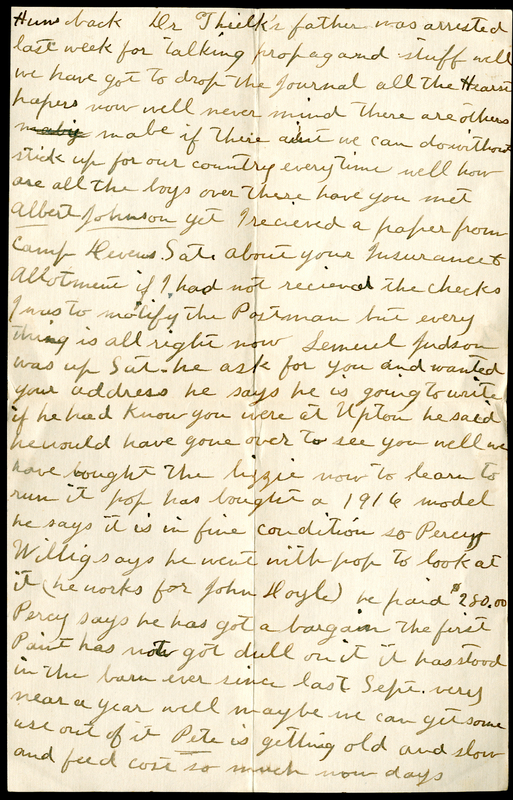 Huns back Dr Thielk's father was arrested
last week for talking propagand stuff well
we have got to drop the Journal all the Hearst
papers now well never mind there are others
mabe if there aint we can do without
stick up for our country everytime well how
are all the boys over there have you met
Albert Johnson yet I recieved a paper from
Camp Devens Sat. about your Insurance &
Allotment if I had not recieved the checks
I was to notify the Postman but every
thing is all right now Lemuel Judson
was up Sat. he ask for you and wanted
your address he says he is going to write
if he had know you were at Upton he said
he would have gone over to see you well we
have bought the lizzie now to learn to
run it pop has bought a 1916 model
he says it is in fine condition so Percy
Willig says he went with pop to look at
it (he works for John Hoyle) he paid $280.00
Percy says he has got a bargain the first
Paint has not got dull on it it has stood
in the barn ever since last Sept. very
near a year well maybe we can get some
use out of it Pete is getting old and slow
and feed cost so much now days